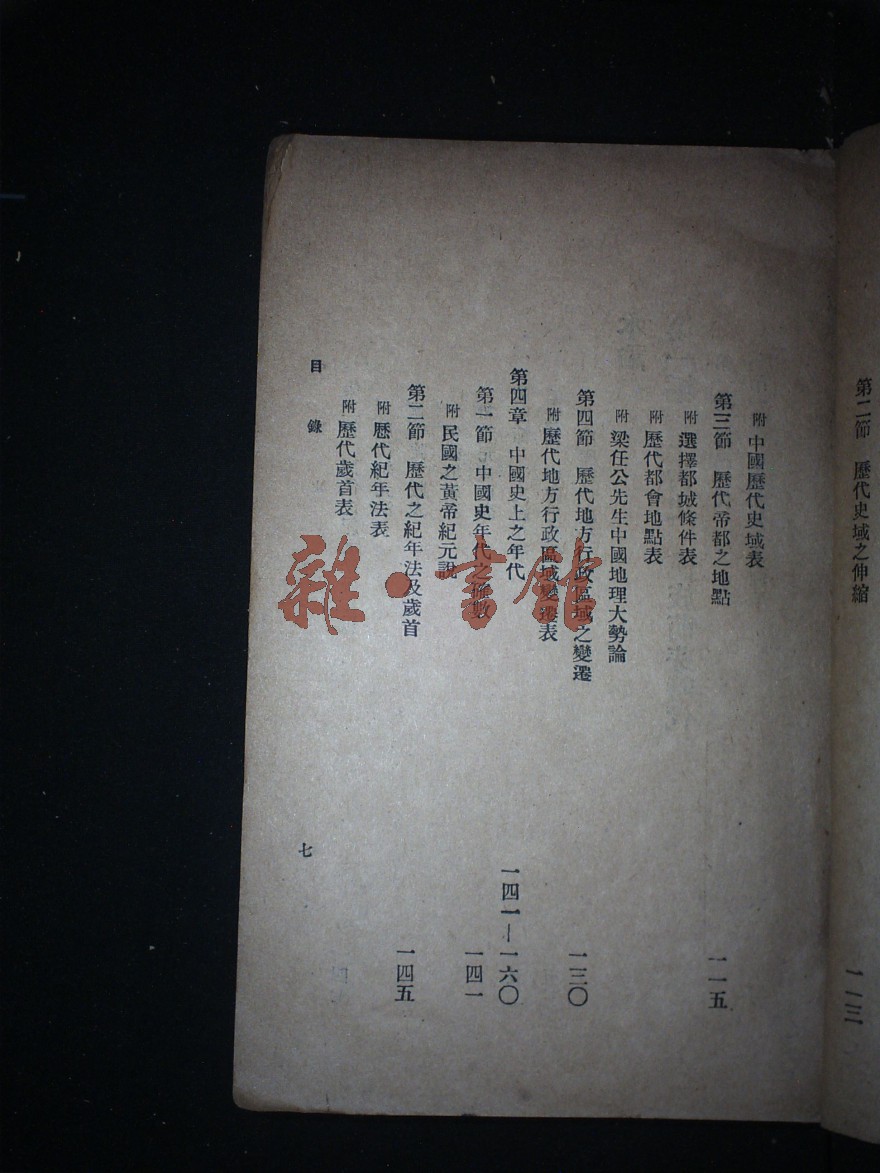 第二節 歷代史域之伸縮 一一三
附 中國歷代史域表
第三節 歷代帝都之地點 一一五
附 選擇都城條件表
附 歷代都會地點表
附 梁任公先生中國地理大勢論
第四節 歷代地方行政區域之變遷 一三〇
附 歷代地方行政區域變遷表
第四章 中國史上之年代 一四一—一六〇
第一節 中國史年代之 數 一四一
附 民國之黃帝紀元說
第二節 歷代之紀年法及歲首 一四五
附 歷代紀年法表
附 歷代歲首表
目錄
七
雜·書館